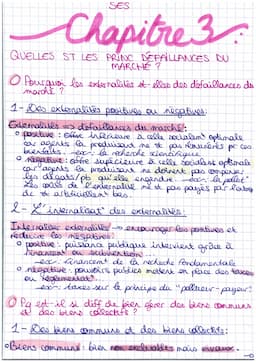 SES
Chapitre 3 :
QUELLES ST LES PRINC DÉFAILLANCES DU
MARCHÉ ?
Pourquoi les externalités st-elles des défaillances du
marché ?
1 - Des externalités positives ou négatives:
Externalités => défaillances du marché:
o positive : offre inférieure à celle socialmt optimale
car agents la produisant ne st pas rémunérés pr ces
bienfaits. ex: la recherche scientifique.
o négative : offre supérieure à celle socialmt optimale
car agents la produisant ne doivent pas compenser
les dégats/pb qu'elle engendre. ex: la pollut°
Les coûts de l'externalité ne st pas payés par l'auteur
de artificiellmt bas.
2 - L'internalisat° des externalités:
Internaliser externalités → encourager les positives et
réduire les négatives:
o positive : puissance publique intervient grâce à
financemt ou subvention.
ex: financemt de la recherche fondamentale
o négative : pouvoirs publics mettent en place des taxes
ou réglementat°
ex: taxes sur le principe du "pollueur-payeur".
Pq est-il si diff de bien gérer des biens communs
et des biens collectifs ?
1 - Des biens communs et des biens collectifs:
Biens communs : bien non excluables mais rivaux.